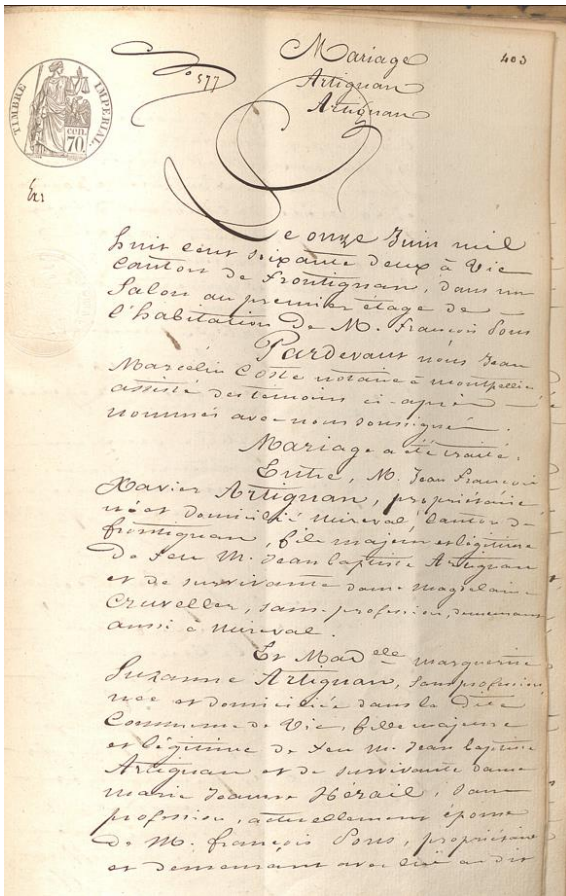 Mariage
403
No 577
Artignan
Artignan
TIMBRE IMPERIAL
cen.
70.
Le onze Juin mil
huit cent soixante deux à Vic
canton de Frontignan, dans un
Salon au premier étage de
l'habitation de M. François Pons
Pardevant nous Jean
Marcelin Coste notaire à montpellier
assisté des temoins ci-après
nommés avec nous soussignés.
Mariage a été traité.
Entre, M. Jean François
Xavier Artignan, propriétaire
né et domicilié mireval, Canton de
frontignan, fils majeur et légitime
de feu M. Jean baptiste Artignan
et de survivante dame magdelaine
Cruvellier, sans profession, demeurant
aussi à mireval.
Et Mad elle marguerite
Suzanne Artignan, sans profession,
née et domiciliée dans la dite
Commune de Vic, fille majeure
et légitime de feu M. Jean baptiste
Artignan et de survivante dame
marie Jeanne Hérail, sans
profession, actuellement épouse
de M. françois Pons, propriétaire
et demeurant avec lui au dit